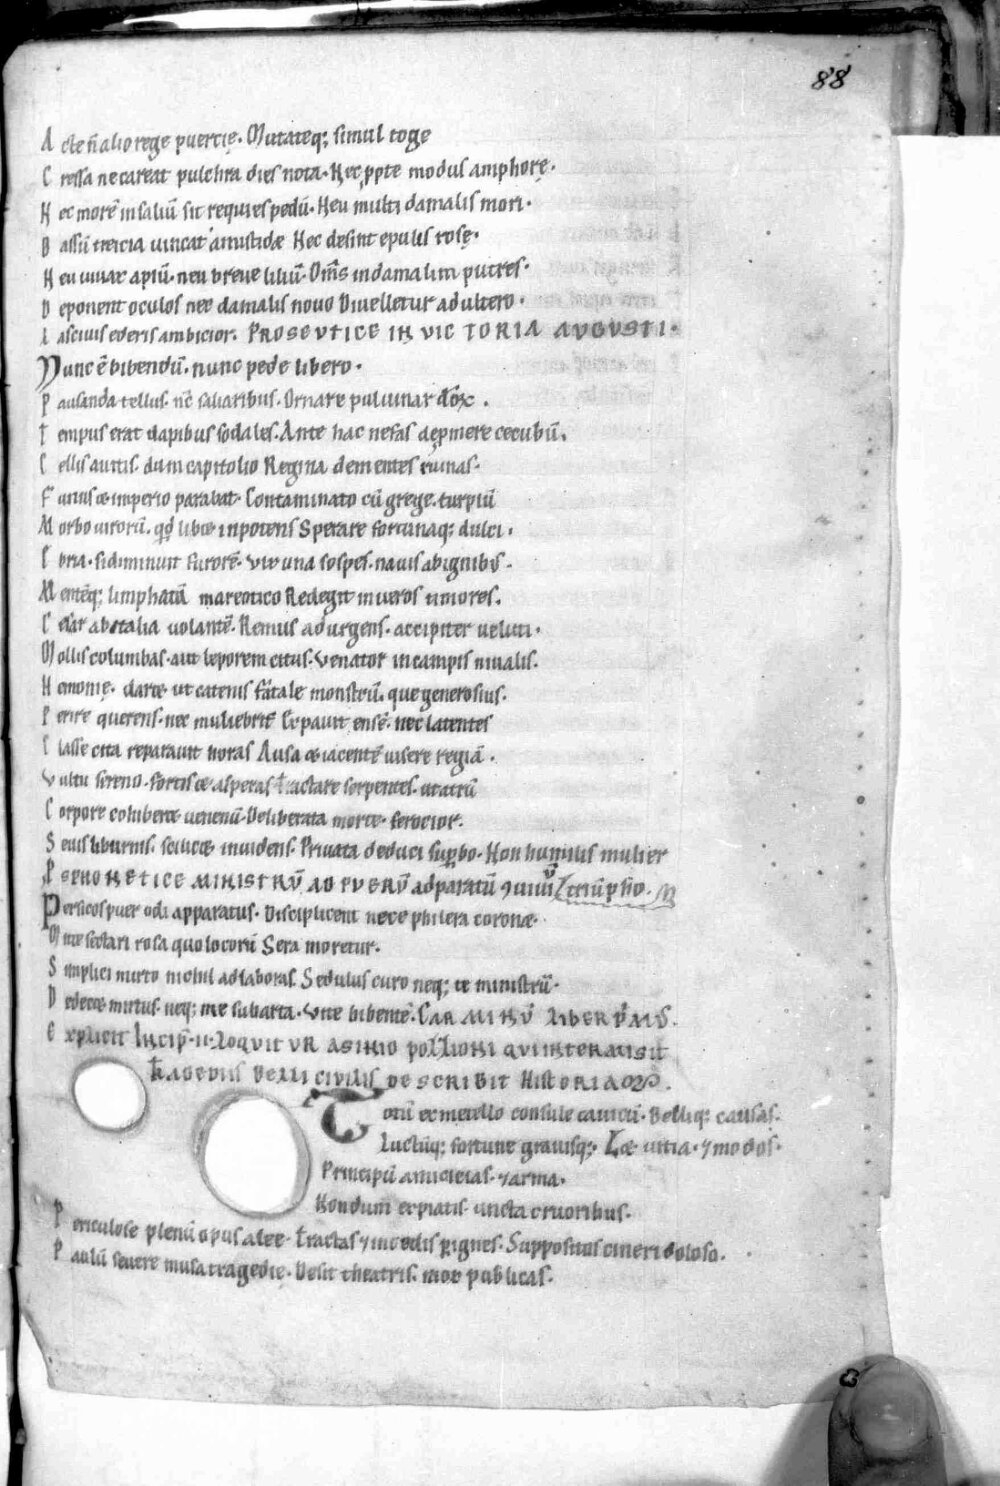 88
A cte n̄ alio rege puertie. Mutateq; simul toge
C ressa ne careat pulchra dies nota. Nec ꝓpte modus amphorę.
N ec morē in saliū sit requies pedū. Neu multi damalis meri.
B assū treicia uincat amistide Nec desint epulis rosę.
N eu uiuax apiū. neu breue liliū. Om̄s in damalim putres.
D eponent oculos nec damalis nouo Diuelletur adultero.
L asciuis ederis ambicior. PROSEVTICE IN VICTORIA AVGVSTI.
Nunc ē bibendū. nunc pede libero.
P ulsanda tellus. nc̄ saliaribus. Ornare puluinar
T empus erat dapibus sodales. Ante hac nefas depmere cecubū.
C ellis auitis. dum capitolio Regina dementes ruinas.
F unus & imperio parabat. Contaminato cū grege. turpiū
M orbo uirorū. libet inpotens Sperare fortunaq; dulci.
E bria. sed minuit furorē. Vix una sospes. nauis ab ignibus.
M entēq; limphatā mareotico Redegit in ueros timores.
C esar ab italia uolantē. Remus adurgens. accipiter ueluti.
M ollis columbas. aut leporem citus. Venator in campis niualis.
H emonię. daret ut catenis fatale monstrū. que generosius.
P erire querens. nec muliebrit̄ Expauit ensē. nec latentes
C lasse cita reparauit horas Ausa & iacentē uisere regiā.
V ultu sereno. fortis & asperas tractare serpentes. ut atrū
C orpore conbiberet uenenū. Deliberata morte. ferocior.
S euis liburnis. scilicet inuidens. Priuata deduci suꝑbo. Non humilis mulier
P SENONETICE MINISTRV̄ AD PVERV̄ adparatū triūpho.
Persicos puer odi apparatus. Displicent nexe philera coronæ.
M itte sectari rosa quo locorū Sera moretur.
S implici mirto nichil adlabores. Sedulus curo neq; te ministrū.
D edecet mirtus. neq; me sub arta. Vite bibentē. CARMINV̄ LIBER PMS.
E xplicit Incip̄. ii. LOQVITVR ASINIO pollIONI QVI INTERMISIT
TRAGEDIIS BELLI CIVILIS DESCRIBIT HISTORIAM.
Motū ex metello consule ciuicū. Belliq; causas.
Luctūq; fortune grauisq;. Læ uitia. 7 modos.
Principū amicicias. 7 arma.
Nondum expiatis uncta cruoribus.
P ericulose plenū opus alee. Tractas 7 incedis p ignes. Suppositos cineri doloso.
P aulū seuere musa tragedię. Desit theatris. mox publicas.